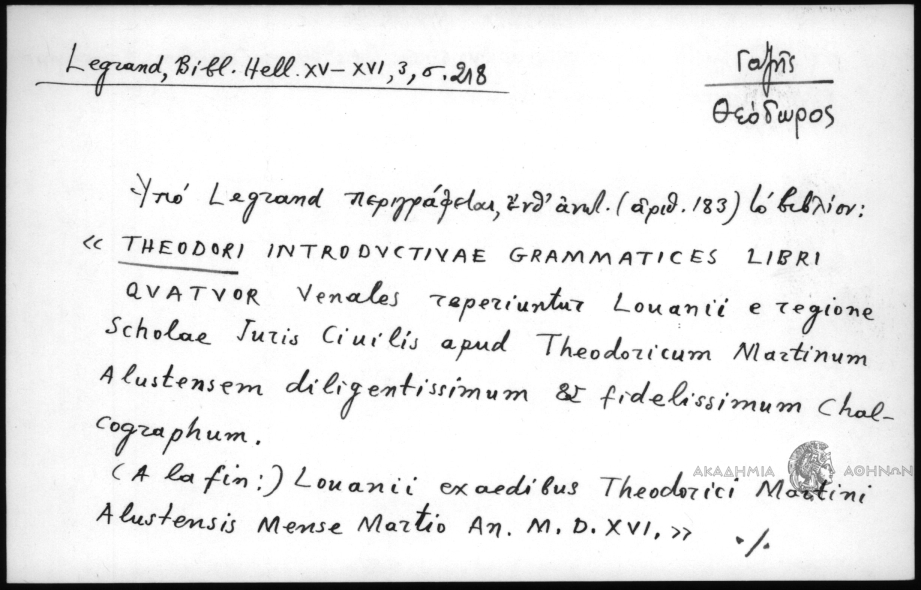 Legrand, Bibl. Hell. XV–XVI, 3, σ. 218
Γαζῆς
Θεόδωρος
Ὑπό Legrand περιγράφεται, ἔνθ' ἀνωτ. (ἀριθ. 183) τό βιβλίον:
« THEODORI INTRODVCTIVAE GRAMMATICES LIBRI
QVATVOR Venales reperiuntur Louanii e regione
Scholae Juris Ciuilis apud Theodoricum Martinum
Alustensem diligentissimum & fidelissimum Chal-
cographum.
(A la fin:) Louanii ex aedibus Theodorici Martini
Alustensis Mense Martio An. M. D. XVI. » ./.
ΑΚΑΔΗΜΙΑ ΑΘΗΝΩΝ